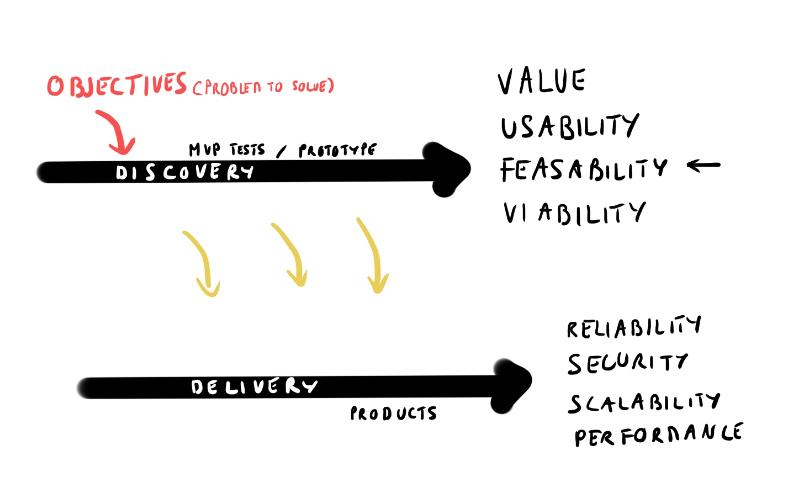 OBJECTIVES (PROBLEM TO SOLVE)
MVP TESTS / PROTOTYPE
DISCOVERY
VALUE
USABILITY
FEASABILITY
VIABILITY
DELIVERY
PRODUCTS
RELIABILITY
SECURITY
SCALABILITY
PERFORMANCE